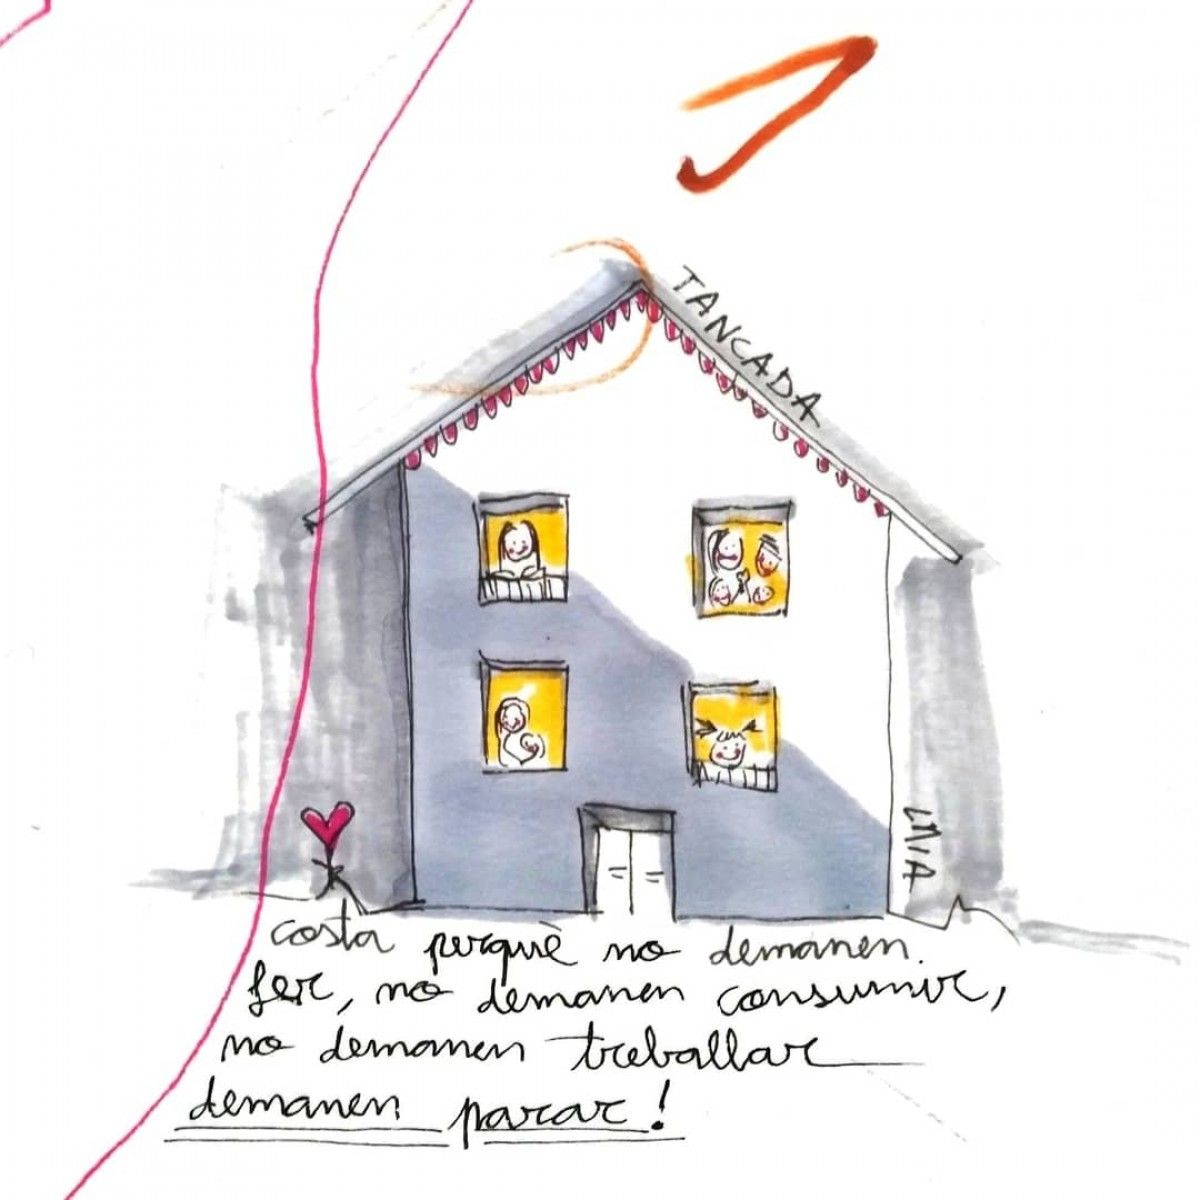 TANCADA
costa perquè no demanen.
fer, no demanen consumir,
no demanen treballar
demanen parar!